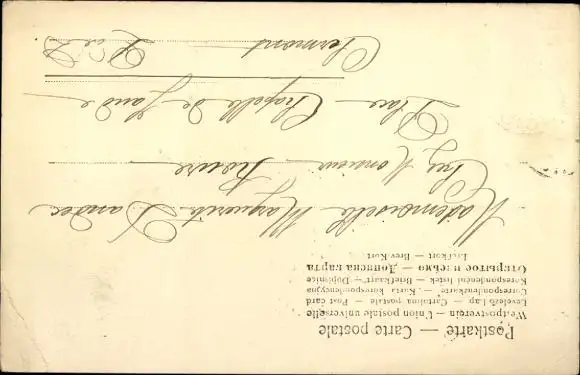 Postkarte — Carte postale
Weltpostverein — Union postale universelle
Levelező-Lap — Cartolina postale — Post card
Correspondenzkarte. — Karta korespondencyjna
Korespondenční lístek — Briefkaart — Dopisnice
Открытое письмо — Дописна карта
Brefkort — Brev-Kort
Mademoiselle Marguerite Dandec
Chez Monsieur Roeuve
Place Chapelle de Jaude
Clermont P. de D.